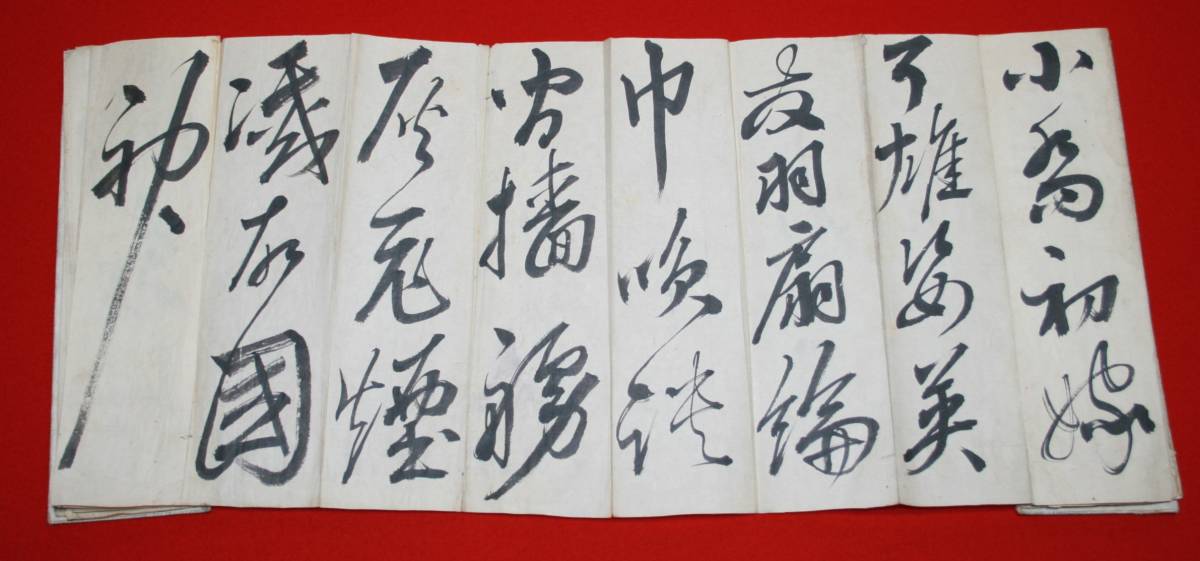 小喬初嫁
了雄姿英
發羽扇綸
巾咲談
間檣艣
灰飛煙
滅故國
神